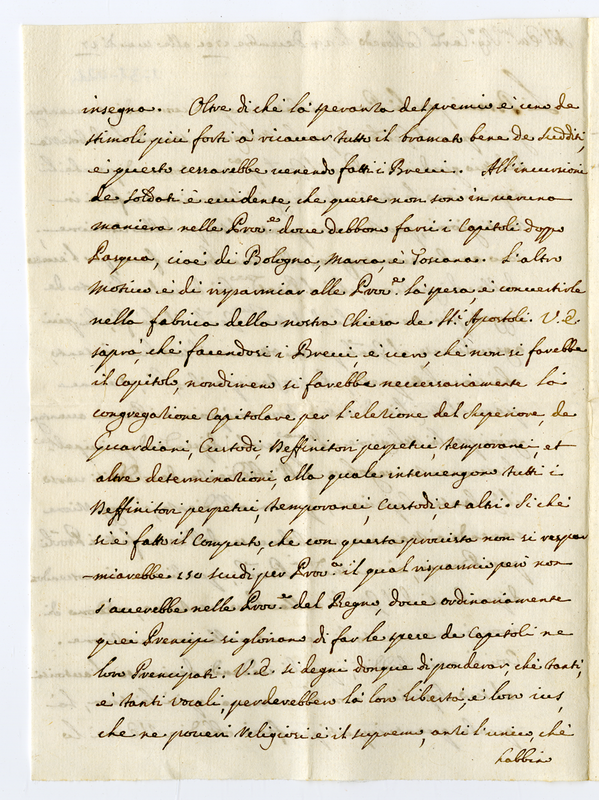 insegna. Oltre di chè la speranza del premio è uno de
stimoli più forti à ricavar tutto il bramato bene de sudditi,
e questo cessarebbe venendo fatti i Brevi. All'incursioni
de soldati è evidente, che queste non sono in veruna
maniera nelle Prov.e dove debbono farsi i Capitoli doppo
Pasqua, cioè di Bologna, Marca, e Toscana. L'altro
motivo è di risparmiar alle Prov.e la spesa, e convertirle
nella fabrica della nostra Chiesa de SS.ti Apostoli. V. E.
saprà, chè facendosi i Brevi è vero, chè non si farebbe
il Capitolo, nondimeno si farebbe necessariamente la
congregazione Capitolare per l'elezione del Superiore, de
Guardiani, Custodi, Deffinitori perpetui, temporanei, et
altre determinazioni, alla quale intervengono tutti i
Deffinitori perpetui, temporanei, Custodi, et altri. Si chè
si è fatto il Computo, che con questa provista non si respar
miarebbe 150 scudi per Prov.a il qual risparmio però non
s'averebbe nelle Prov.e del Regno dove ordinariamente
quei Prencipi si gloriano di far le spese de Capitoli ne
loro Prencipati. V. E. si degni donque di ponderar, chè tanti,
e tanti vocali, perderebbero la loro libertà, e loro ius,
che ne poveri Religiosi è il supremo, anzi l'unico, chè
habbin